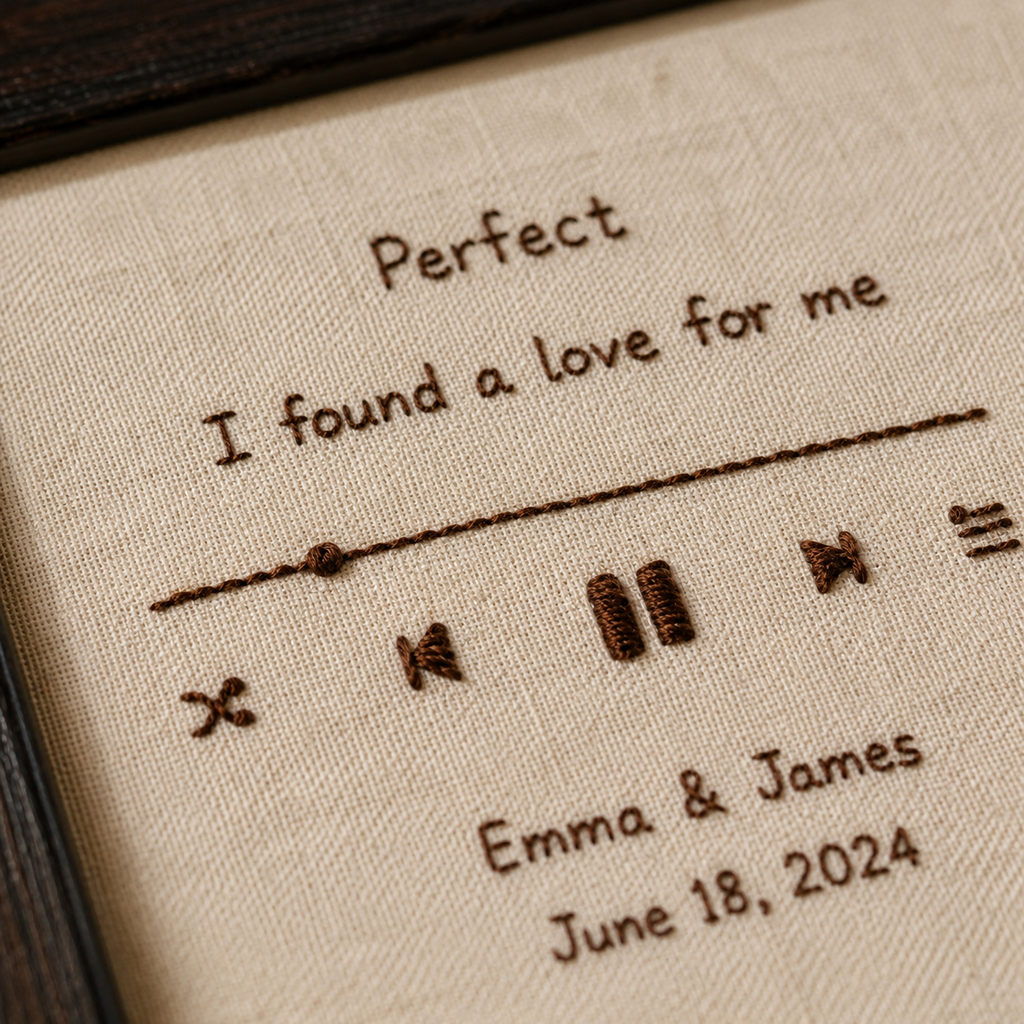 Perfect
I found a love for me
Emma & James
June 18, 2024